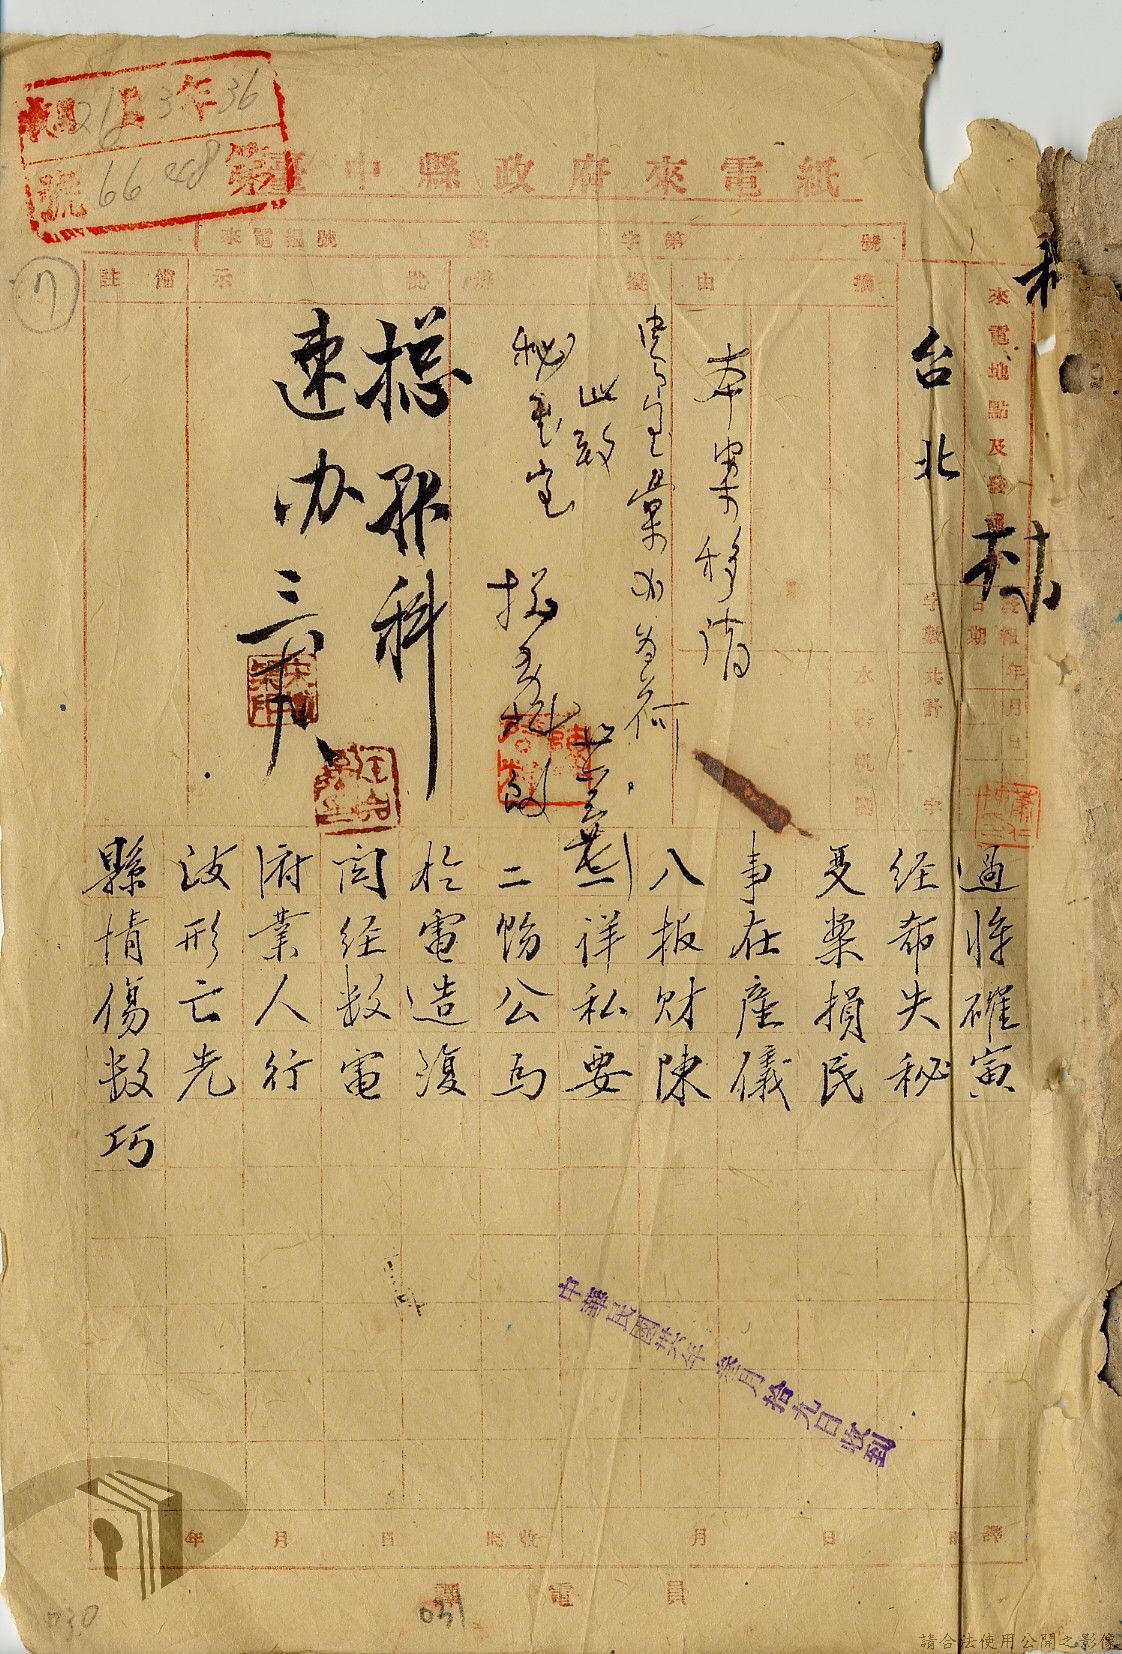 臺中縣政府來電紙
36年3月21日
第66248號
來電編號 字第 號
摘由
擬辦
批示
備註
來電地點及發
台北
本案移請
貴室彙办為荷
此致
秘書室
總務科
速办
三六
縣政府関於二二八事变経過
情形業経電飭詳報在案希將
傷亡人數造公私財產損失確
數先行電復為要陳儀民秘寅
巧
中華民國卅六年叁月拾九日收到
年月日時收
月日時譯
譯電員
031
030
7
請合法使用公開之影像